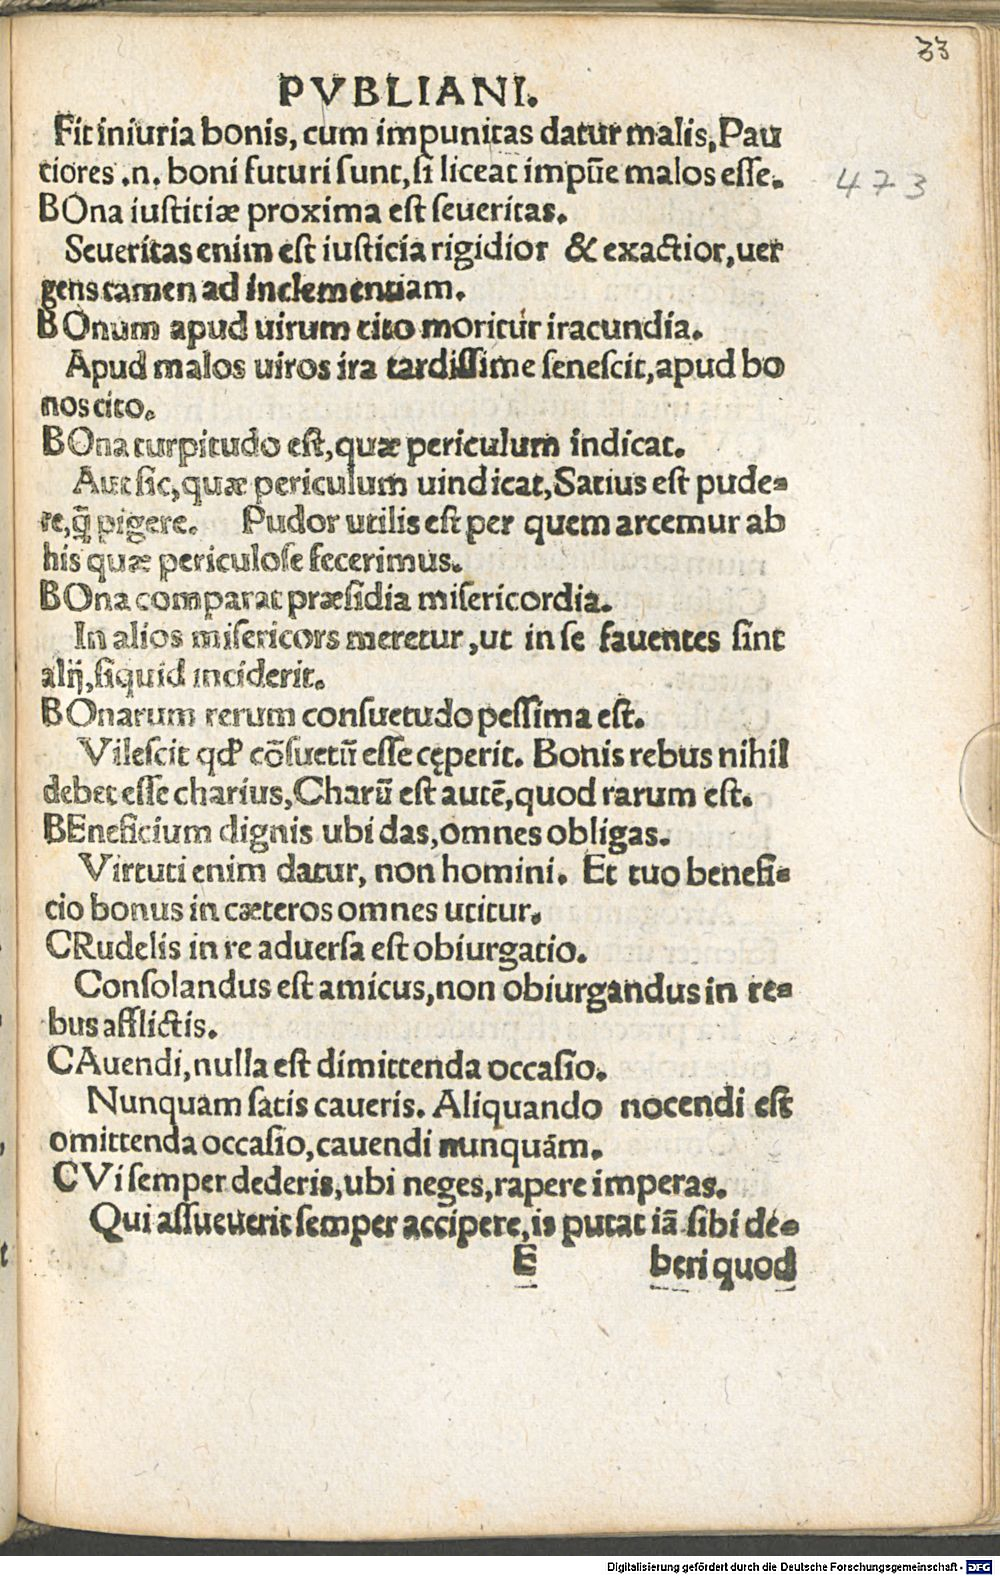 33
PVBLIANI.
Fit iniuria bonis, cum impunitas datur malis, Pau
ciores .n. boni futuri sunt, si liceat impũe malos esse.
473
BOna iustitiæ proxima est seueritas.
Seueritas enim est iusticia rigidior & exactior, uer
gens tamen ad inclementiam.
BOnum apud uirum cito moritur iracundia.
Apud malos uiros ira tardissime senescit, apud bo
nos cito.
BOna turpitudo est, quæ periculum indicat.
Aut sic, quæ periculum uindicat, Satius est pude-
re, q̃ pigere. Pudor utilis est per quem arcemur ab
his quæ periculose fecerimus.
BOna comparat præsidia misericordia.
In alios misericors meretur, ut in se fauentes sint
alij, siquid inciderit.
BOnarum rerum consuetudo pessima est.
Vilescit qd' cõsuetũ esse cęperit. Bonis rebus nihil
debet esse charius, Charũ est autẽ, quod rarum est.
BEneficium dignis ubi das, omnes obligas.
Virtuti enim datur, non homini. Et tuo benefi-
cio bonus in cæteros omnes utitur.
CRudelis in re aduersa est obiurgatio.
Consolandus est amicus, non obiurgandus in re-
bus afflictis.
CAuendi, nulla est dimittenda occasio.
Nunquam satis caueris. Aliquando nocendi est
omittenda occasio, cauendi nunquám.
CVi semper dederis, ubi neges, rapere imperas.
Qui assueuerit semper accipere, is putat iã sibi de-
E beri quod
Digitalisierung gefördert durch die Deutsche Forschungsgemeinschaft - DFG